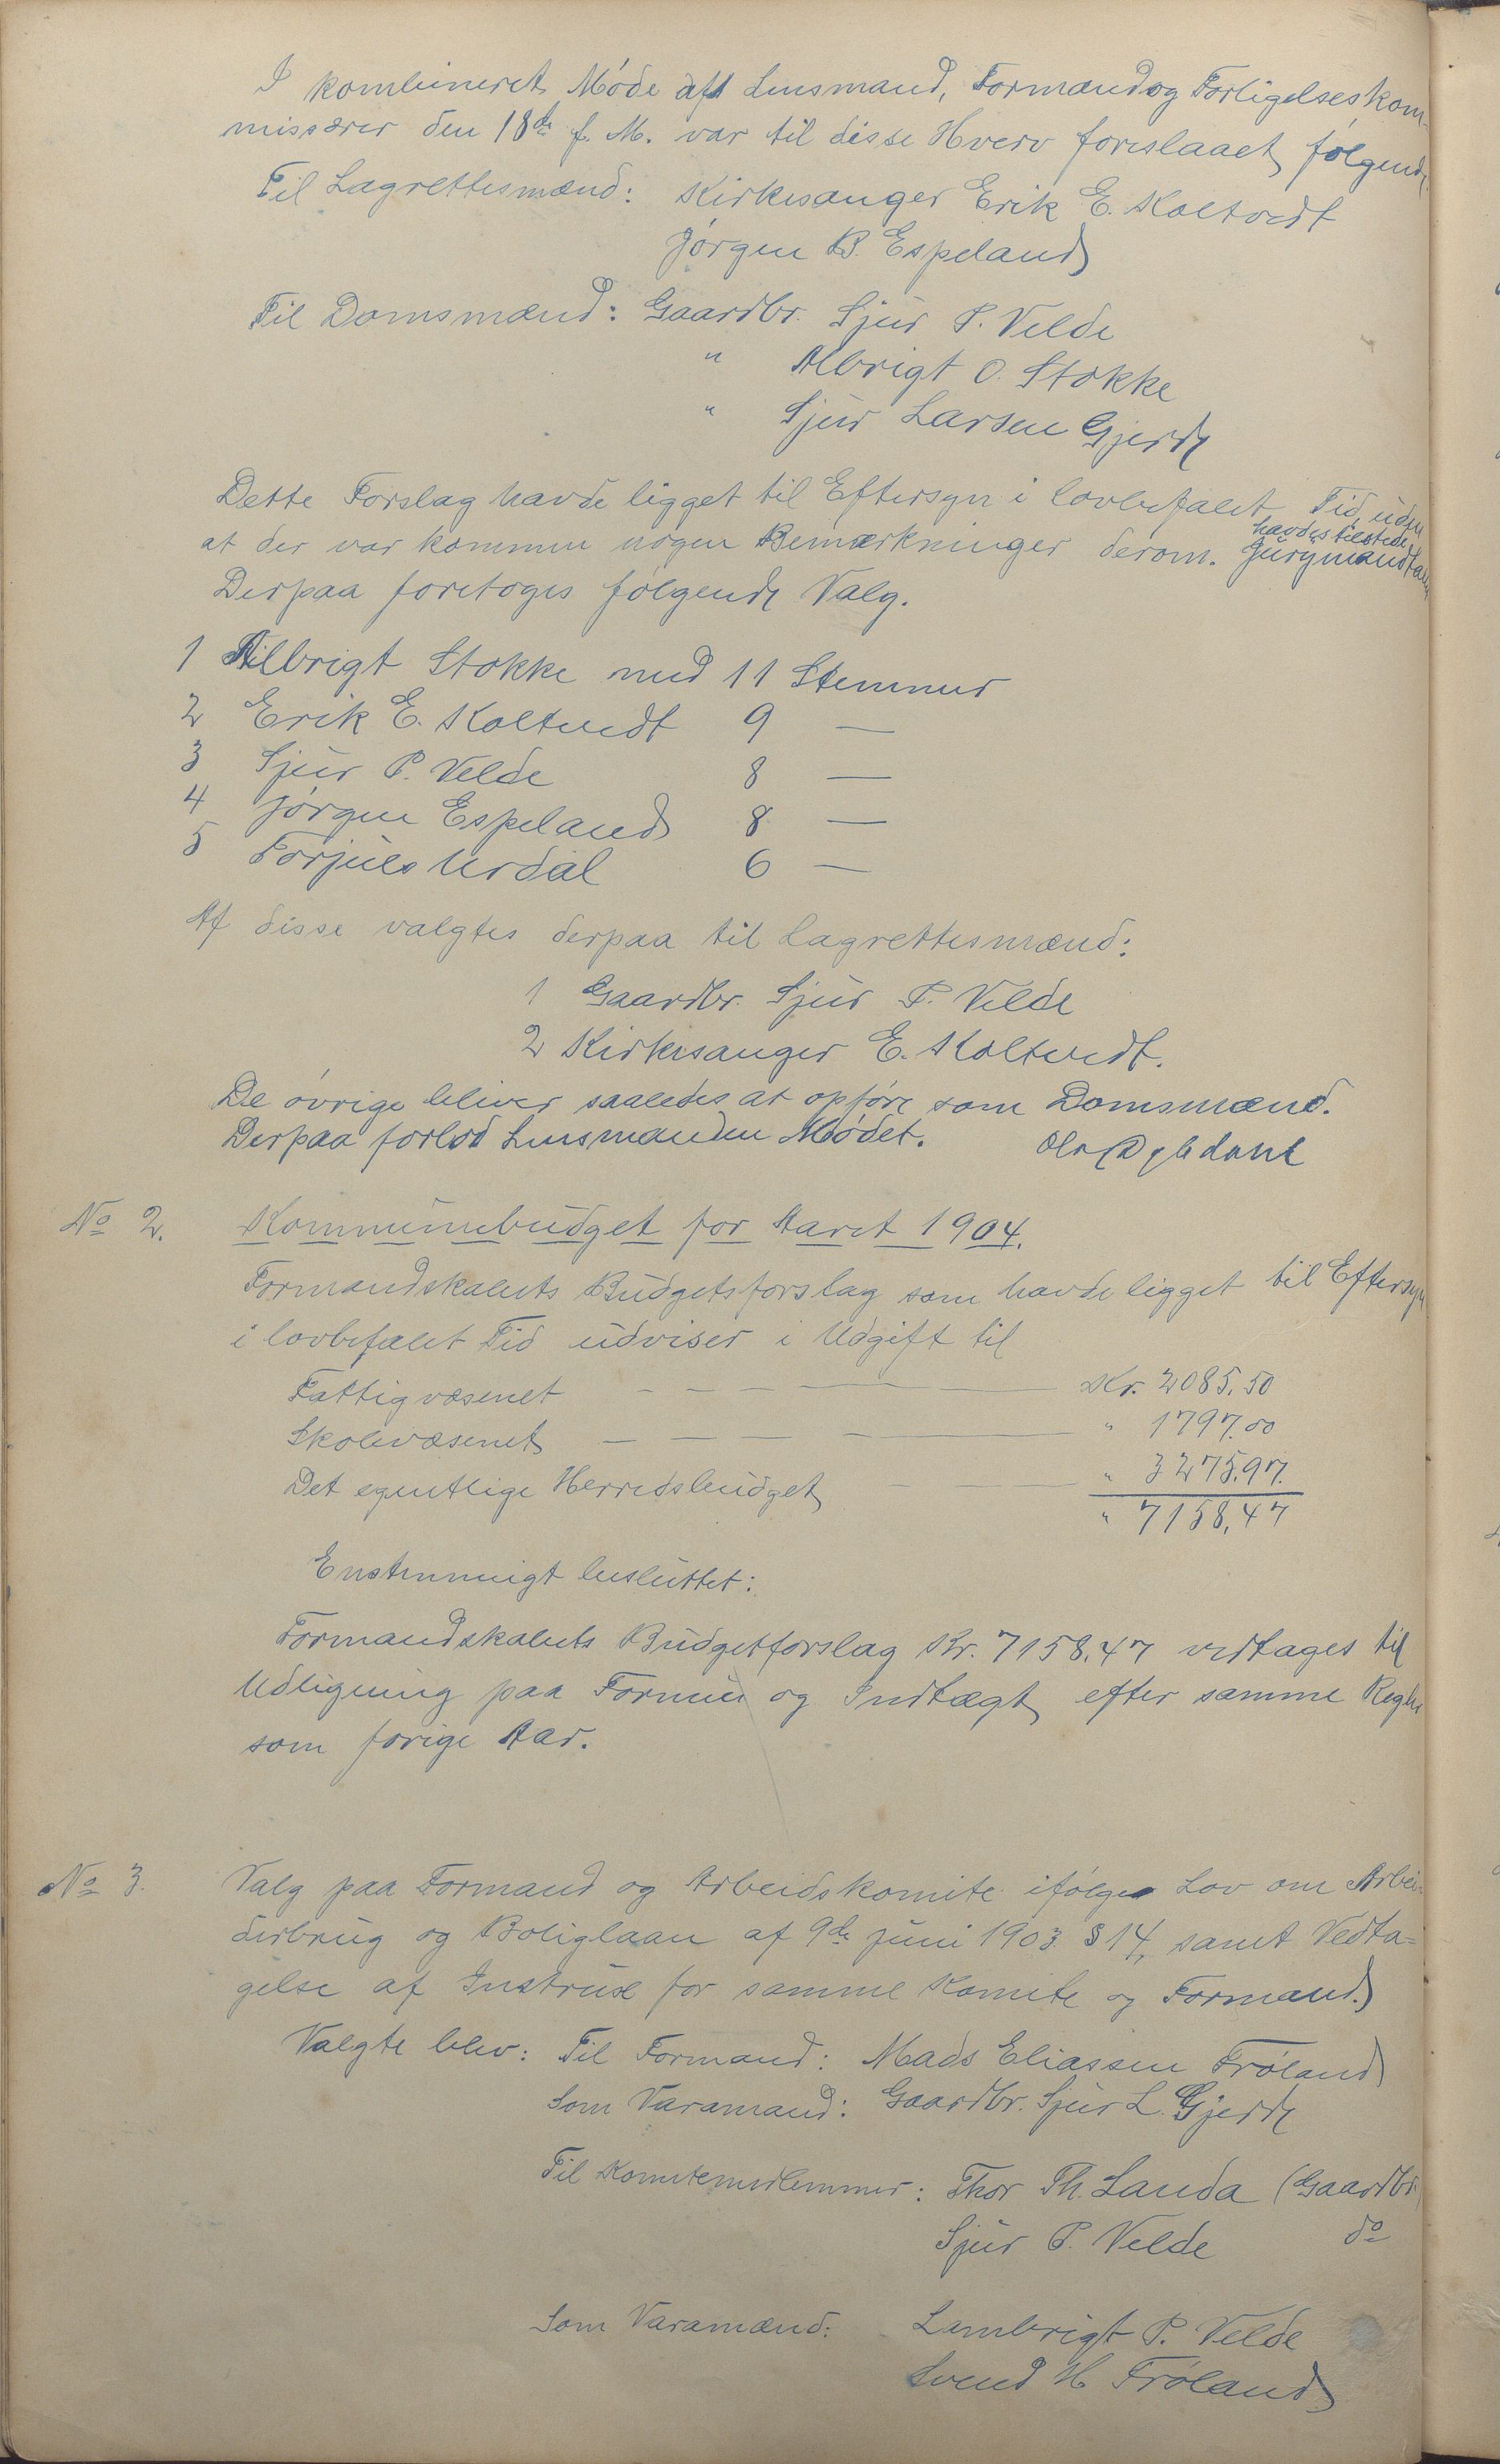 I kombineret Møde af Lensmand, Formand og Forligelseskom-
missærer den 18de f. M. var til disse Hverv foreslaaet følgende
Til Lagrettesmænd: Kirkesanger Erik E. Koltvedt
Jørgen B. Espeland
Til Domsmænd: Gaardbr. Sjur P. Velde
" Albrigt O. Stokke
" Sjur Larsen Gjerde
Dette Forslag havde ligget til Eftersyn i lovbefalet Tid uden
at der var kommen nogen Bemærkninger derom. Jurymandtallet
havdes tilstede.
Derpaa foretoges følgende Valg.
1 Albrigt Stokke med 11 Stemmer
2 Erik E. Koltvedt 9 —
3 Sjur P. Velde 8 —
4 Jørgen Espeland 8 —
5 Torjuls Urdal 6 —
Af disse valgtes derpaa til Lagrettesmænd:
1 Gaardbr. Sjur P. Velde
2 Kirkesanger E. Koltvedt.
De øvrige bliver saaledes at opføre som Domsmænd.
Derpaa forlod Lensmanden Mødet.
No 2. Kommunebudget for Aaret 1904.
Formandskabets Budgetsforslag som havde ligget til Eftersyn
i lovbefalet Tid udviser i Udgift til
Fattigvæsenet — — — — — Kr. 2085,50
Skolevæsenet — — — — — " 1797,00
Det egentlige Herredsbudget — — — " 3275,97.
" 7158,47
Enstemmigt besluttet:
Formandskabets Budgetforslag Kr. 7158,47 vedtages til
Udligning paa Formue og Indtægt efter samme Regler
som forige Aar.
No 3. Valg paa Formand og Arbeidskomite ifølge Lov om Arbei-
derbrug og Boliglaan af 9de juni 1903 § 14, samt Vedta=
gelse af Instrux for samme Komite og Formand.
Valgte blev: Til Formand: Mads Eliassen Frøland
Som Varamand: Gaardbr. Sjur L. Gjerde
Til Komitemedlemmer: Thor Th. Landa (Gaardbr)
Sjur P. Velde do
Som Varamænd: Lambrigt P. Velde
Svend H Frøland